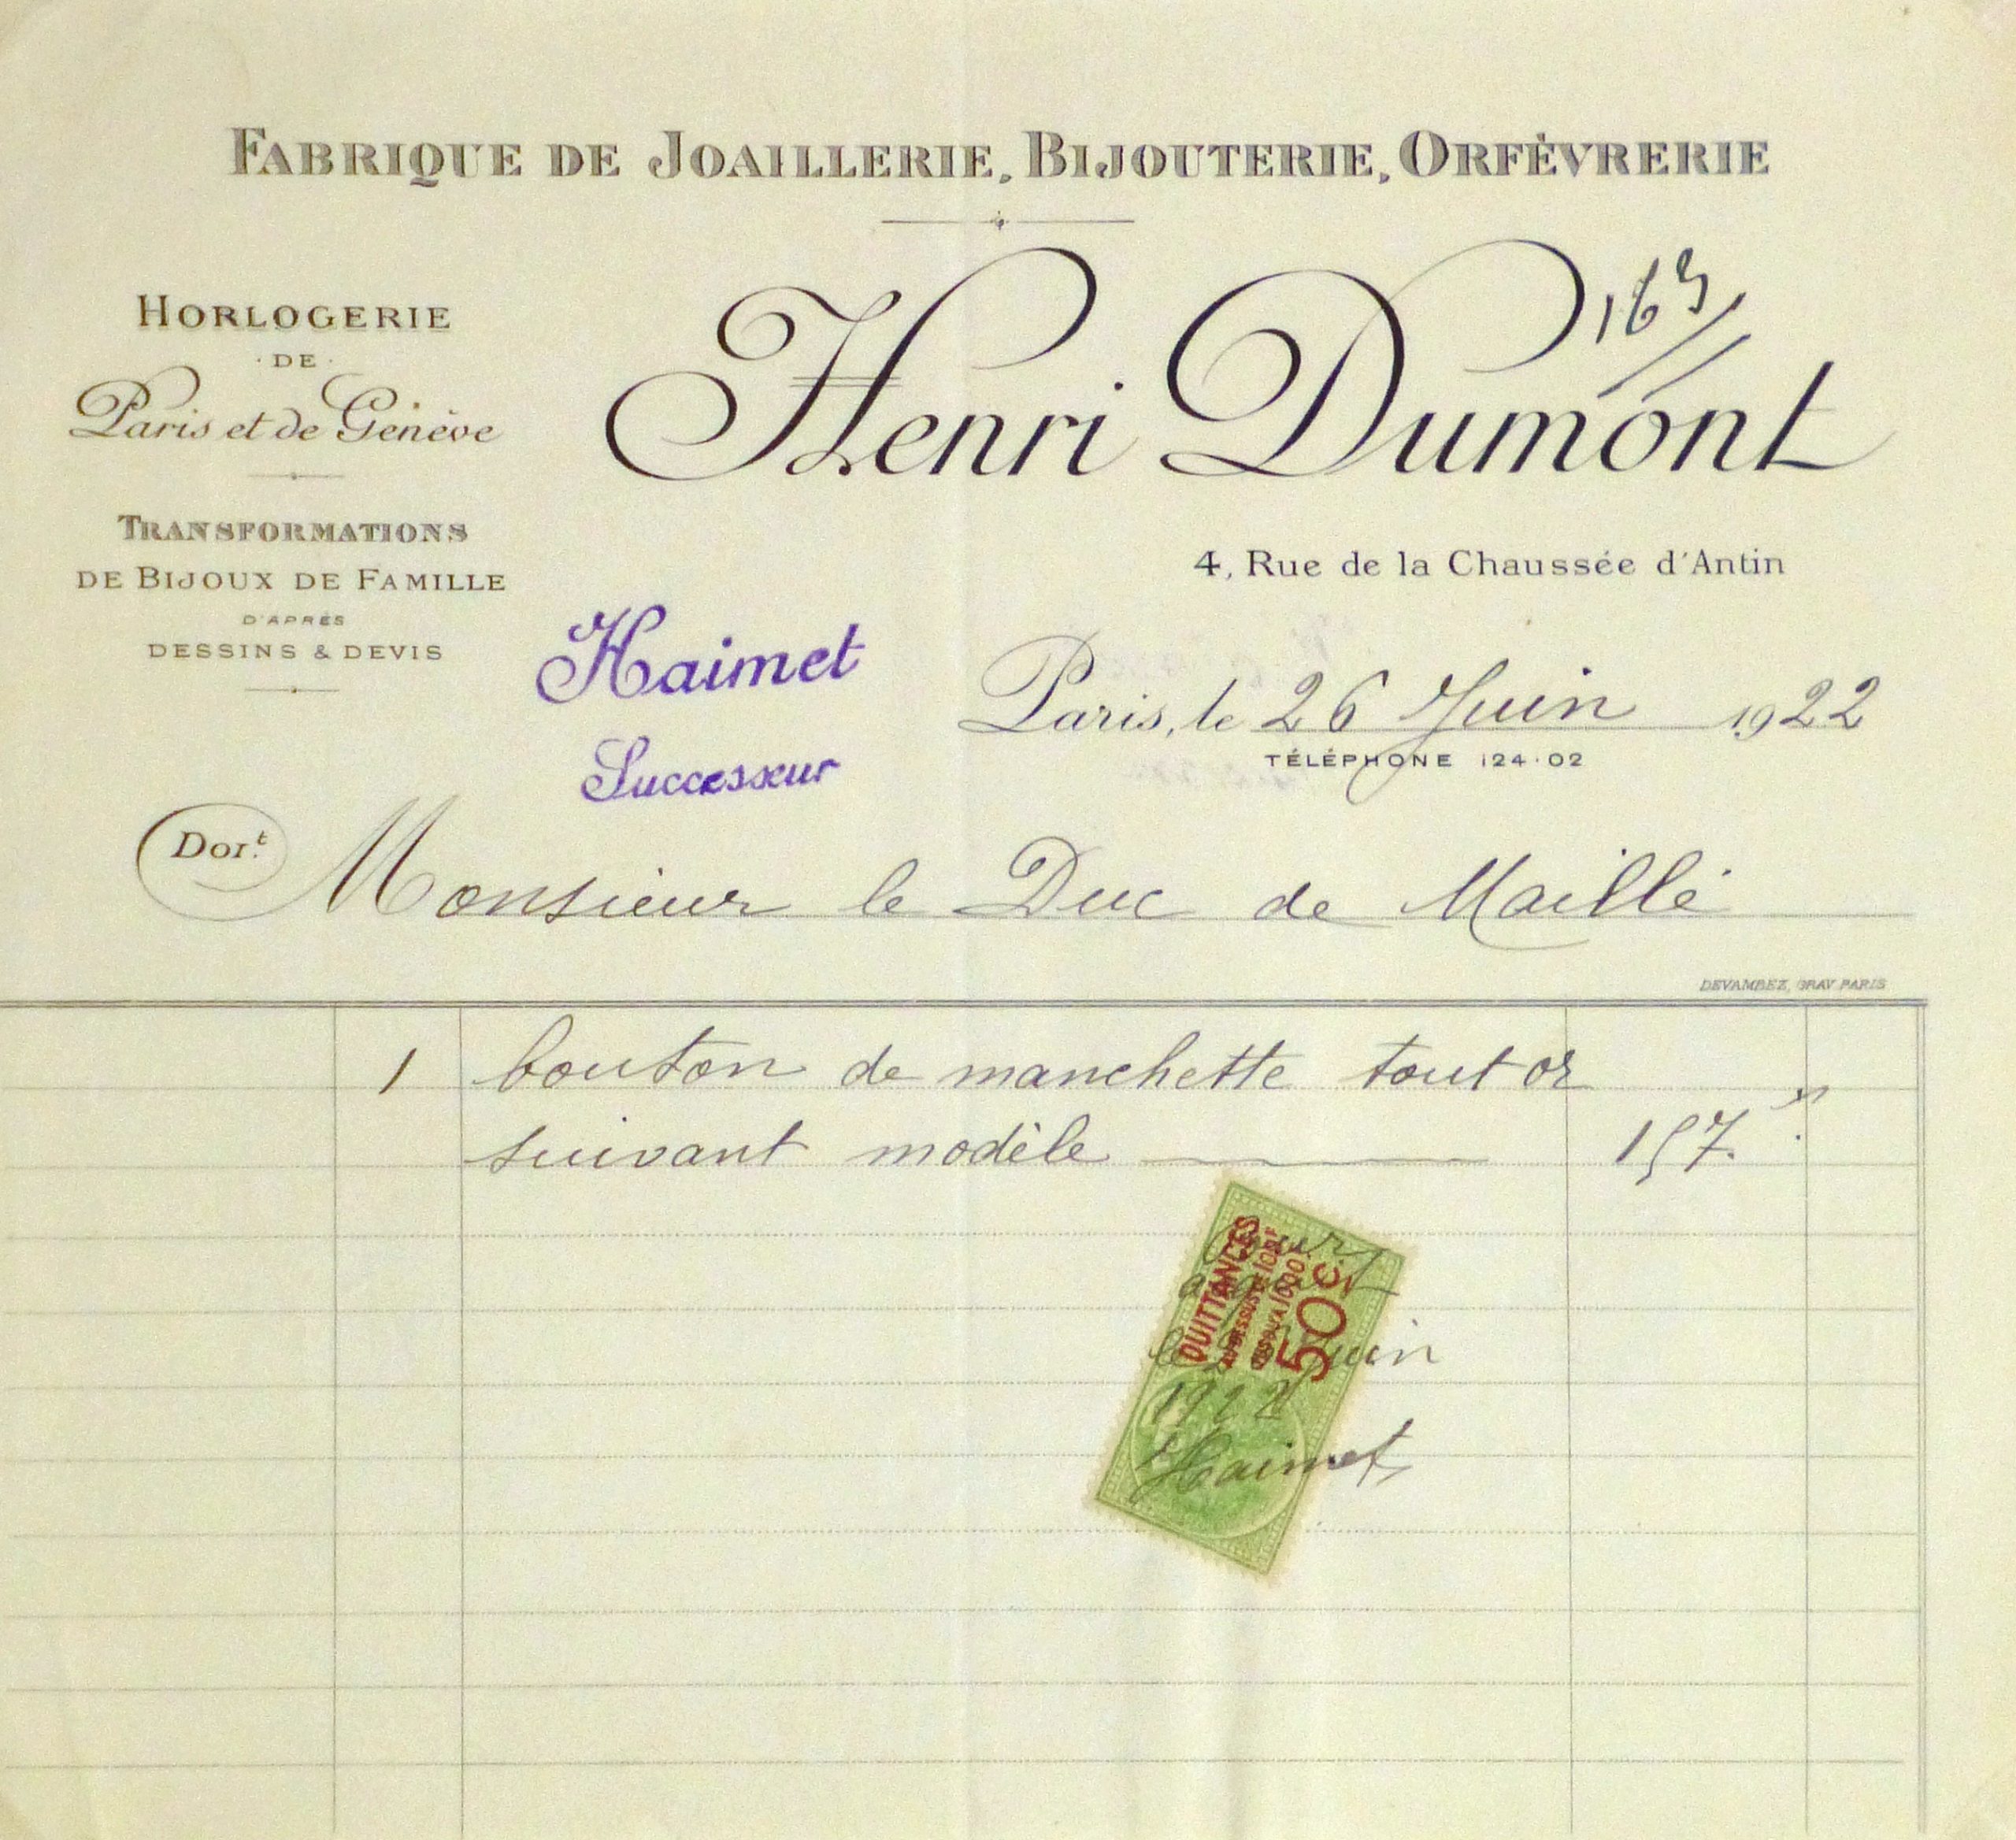 FABRIQUE DE JOAILLERIE, BIJOUTERIE, ORFÈVRERIE
HORLOGERIE
·DE·
Paris et de Genève
TRANSFORMATIONS
DE BIJOUX DE FAMILLE
D'APRÈS
DESSINS & DEVIS
163
Henri Dumont
4, Rue de la Chaussée d'Antin
Haimet
Successeur
Paris, le 26 Juin 1922
TÉLÉPHONE 124·02
Doit Monsieur le Duc de Maillé
DEVAMBEZ, GRAV. PARIS
1 bouton de manchette tout or
suivant modèle 157.
QUITTANCES
50c.
Pour
Juin
1922
Haimet